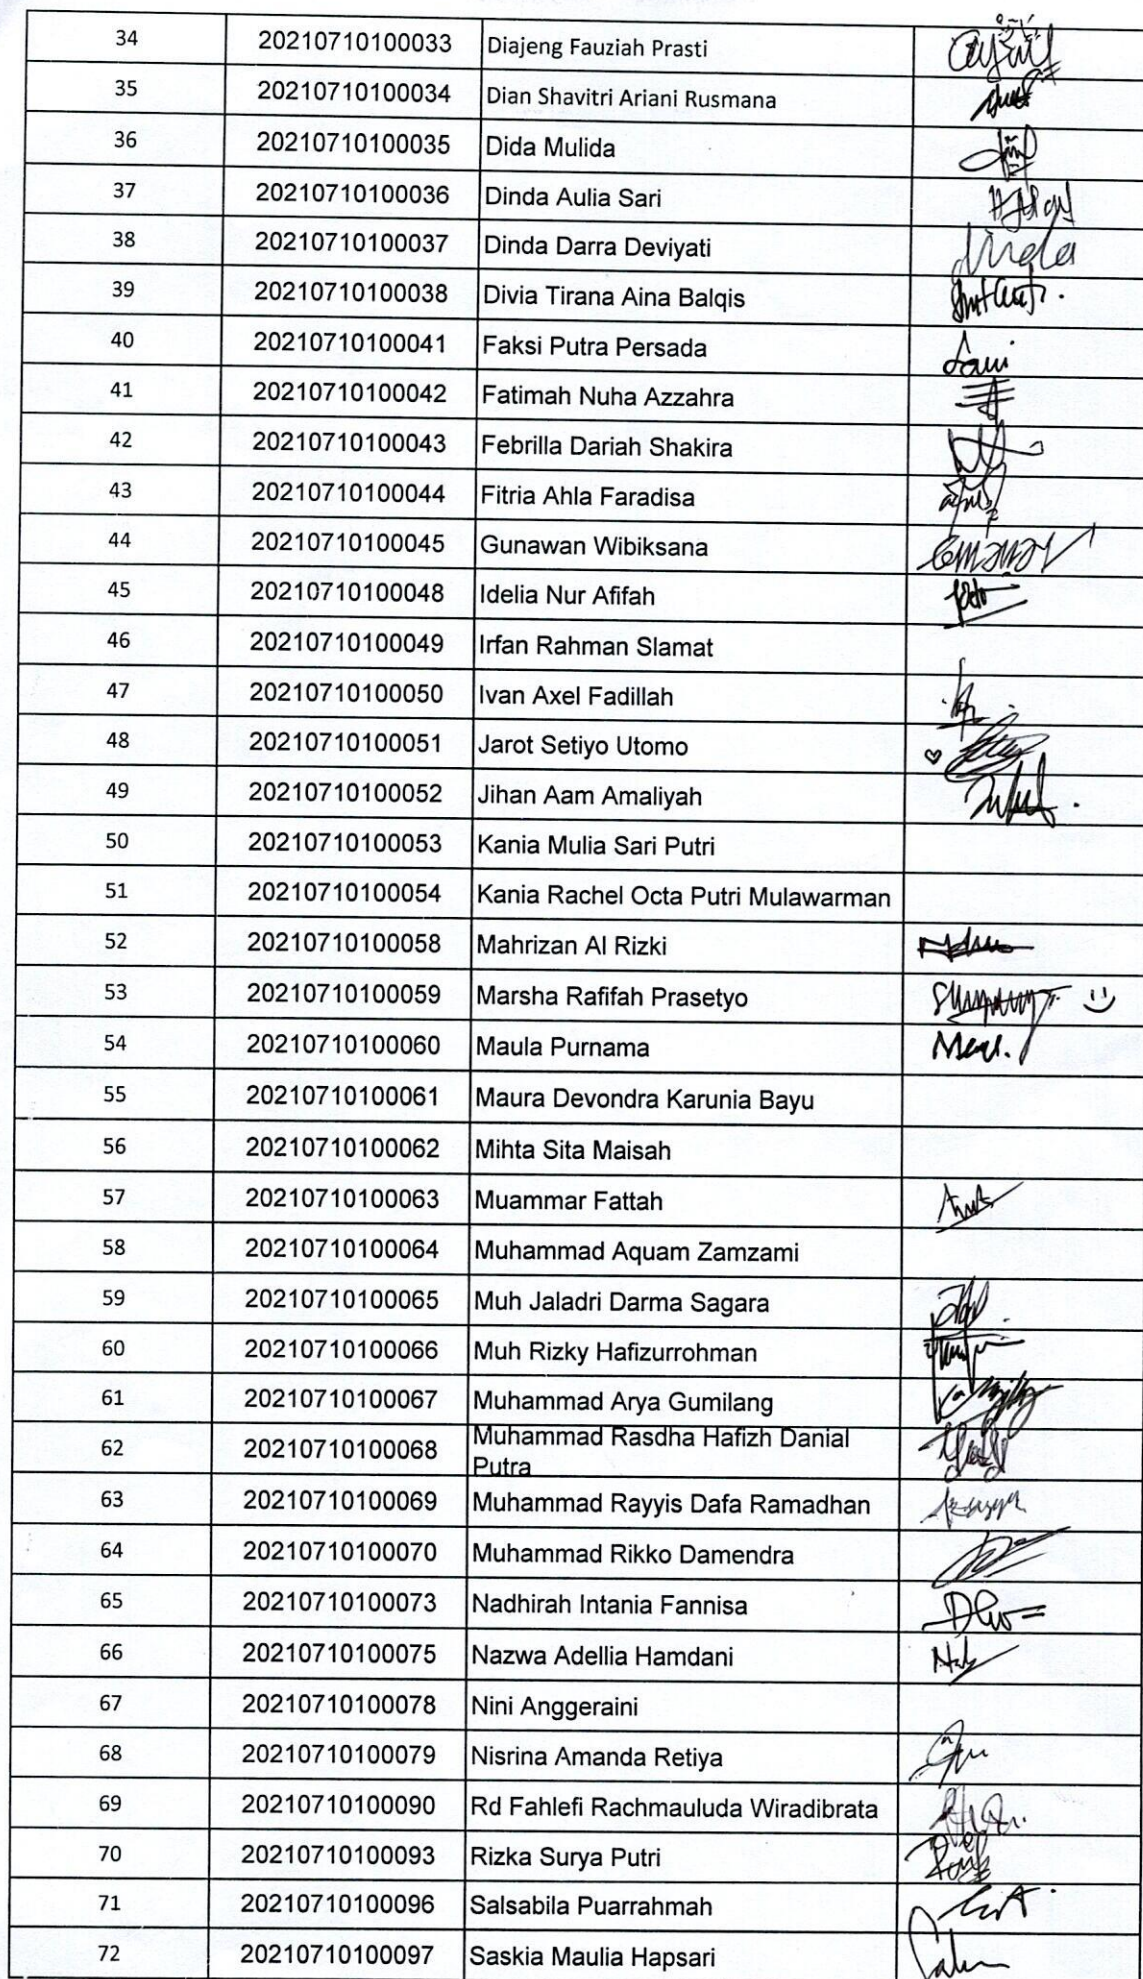 34 20210710100033 Diajeng Fauziah Prasti
35 20210710100034 Dian Shavitri Ariani Rusmana
36 20210710100035 Dida Mulida
37 20210710100036 Dinda Aulia Sari
38 20210710100037 Dinda Darra Deviyati
39 20210710100038 Divia Tirana Aina Balqis
40 20210710100041 Faksi Putra Persada
41 20210710100042 Fatimah Nuha Azzahra
42 20210710100043 Febrilla Dariah Shakira
43 20210710100044 Fitria Ahla Faradisa
44 20210710100045 Gunawan Wibiksana
45 20210710100048 Idelia Nur Afifah
46 20210710100049 Irfan Rahman Slamat
47 20210710100050 Ivan Axel Fadillah
48 20210710100051 Jarot Setiyo Utomo
49 20210710100052 Jihan Aam Amaliyah
50 20210710100053 Kania Mulia Sari Putri
51 20210710100054 Kania Rachel Octa Putri Mulawarman
52 20210710100058 Mahrizan Al Rizki
53 20210710100059 Marsha Rafifah Prasetyo
54 20210710100060 Maula Purnama
55 20210710100061 Maura Devondra Karunia Bayu
56 20210710100062 Mihta Sita Maisah
57 20210710100063 Muammar Fattah
58 20210710100064 Muhammad Aquam Zamzami
59 20210710100065 Muh Jaladri Darma Sagara
60 20210710100066 Muh Rizky Hafizurrohman
61 20210710100067 Muhammad Arya Gumilang
62 20210710100068 Muhammad Rasdha Hafizh Danial
Putra
63 20210710100069 Muhammad Rayyis Dafa Ramadhan
64 20210710100070 Muhammad Rikko Damendra
65 20210710100073 Nadhirah Intania Fannisa
66 20210710100075 Nazwa Adellia Hamdani
67 20210710100078 Nini Anggeraini
68 20210710100079 Nisrina Amanda Retiya
69 20210710100090 Rd Fahlefi Rachmauluda Wiradibrata
70 20210710100093 Rizka Surya Putri
71 20210710100096 Salsabila Puarrahmah
72 20210710100097 Saskia Maulia Hapsari